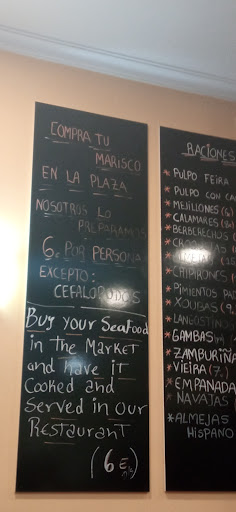 COMPRA TU
MARISCO
EN LA PLAZA
NOSOTROS LO
PREPARAMOS
6€ POR PERSONA
EXCEPTO:
CEFALOPODOS
Buy your SeaFood
in the Market
and have iT
Cooked and
Served in our
Restaurant
(6€
RACIONES
* PULPO FEIRA
* PULPO CON
* MEJILLONES (6
* CALAMARES
* BERBERECHOS
* CHIPIRONES
* PIMIENTOS
* XOUBAS (9,
* LANGOSTINOS
* GAMBAS
* ZAMBURIÑA
* VIEIRA (7,)
* EMPANADA
* NAVAJAS
* ALMEJAS
HISPANO